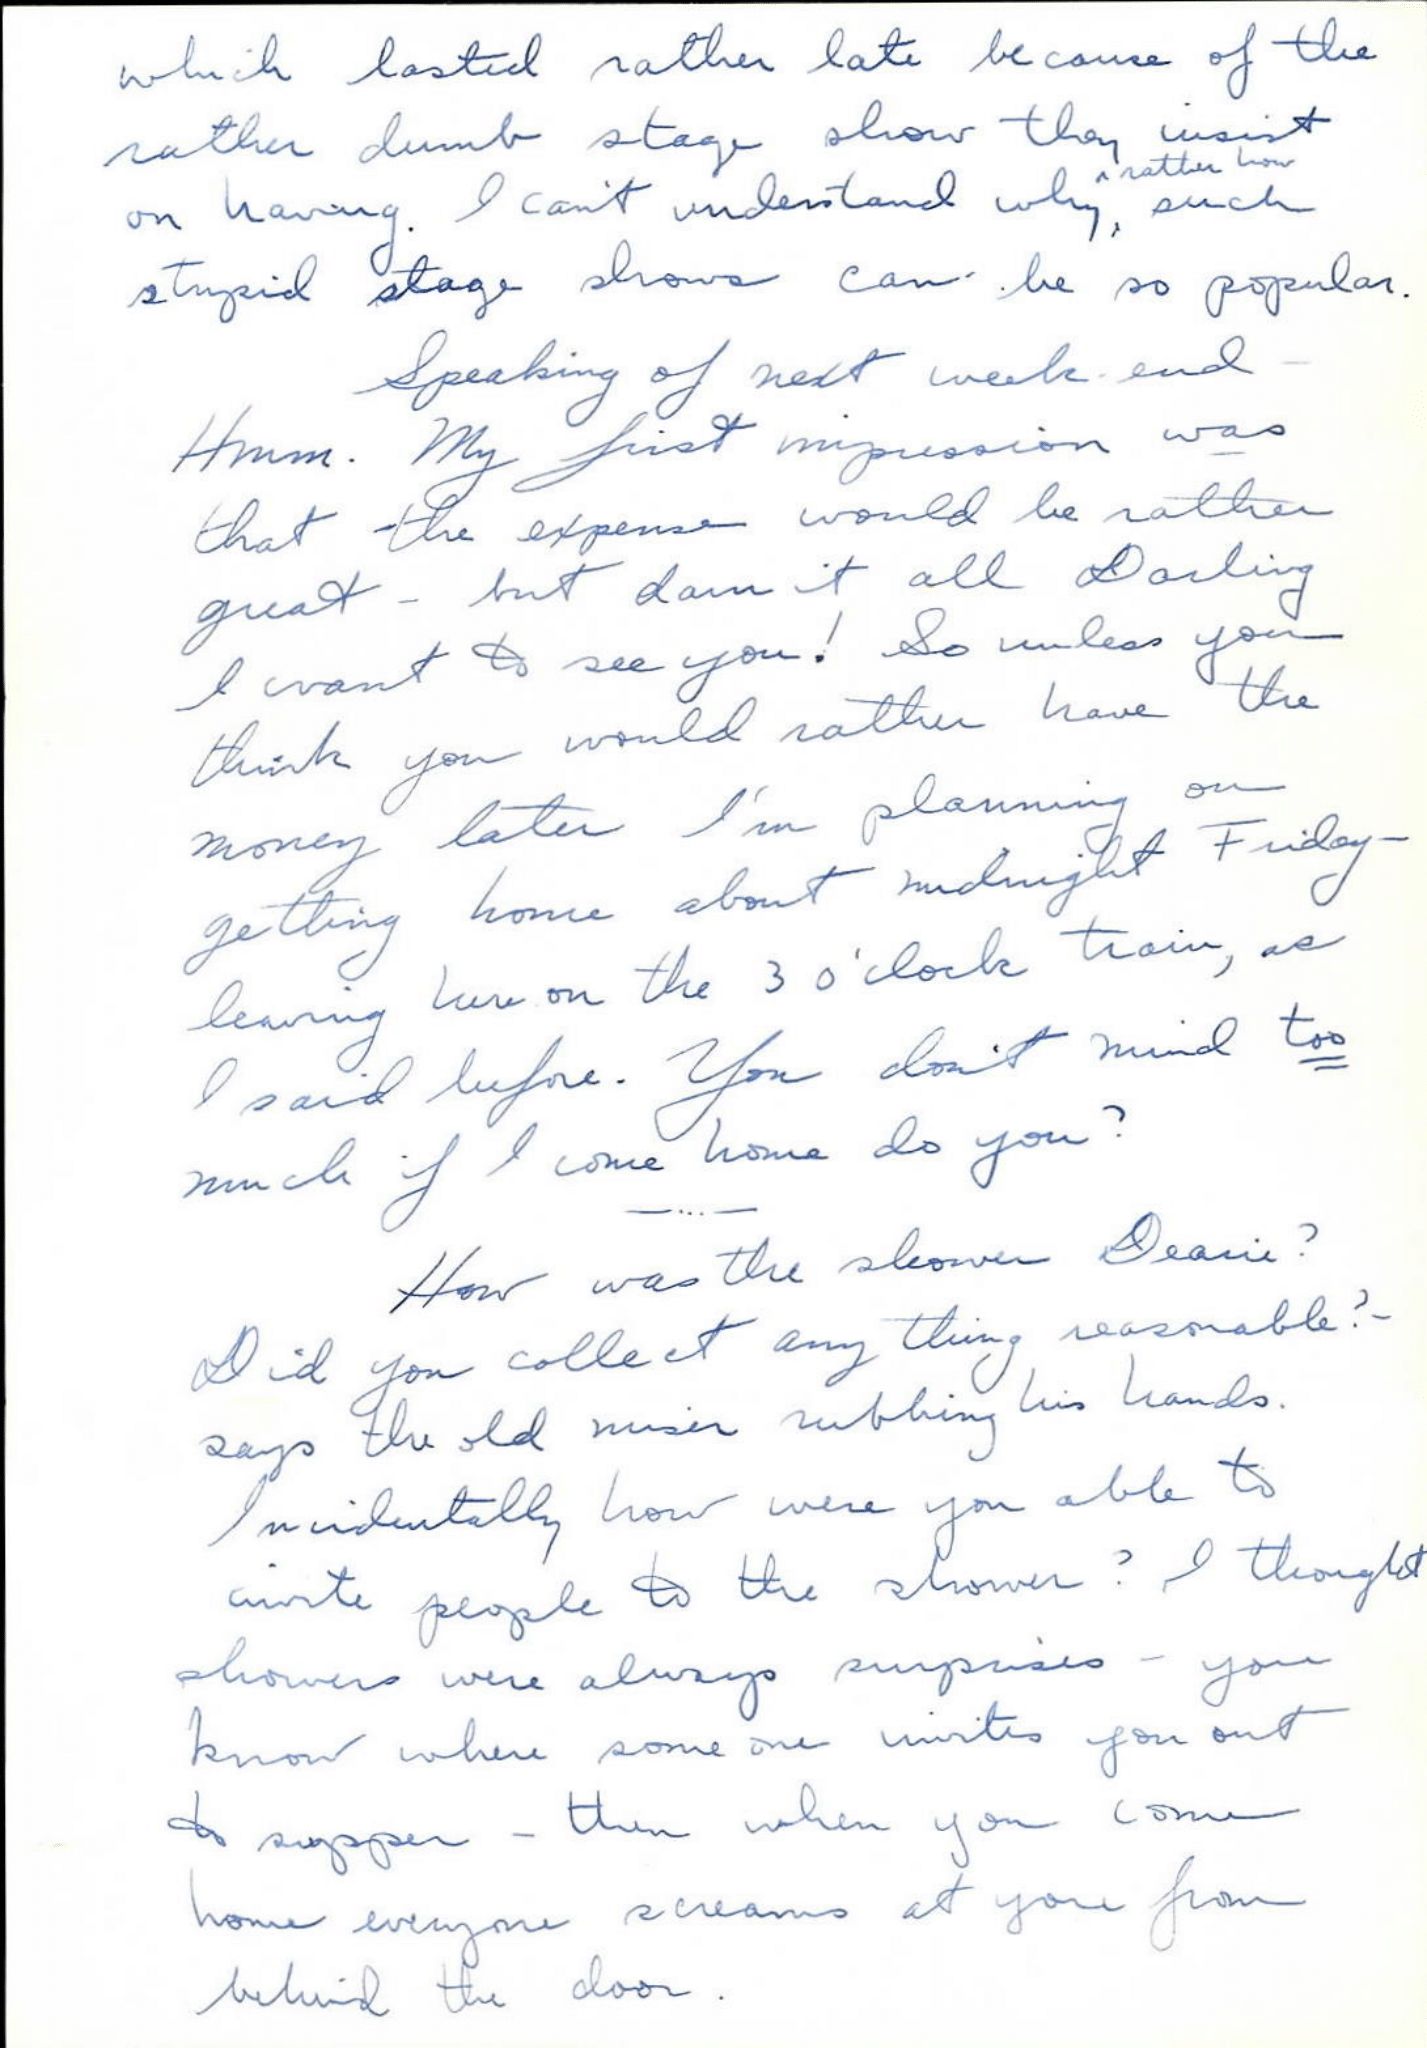 which lasted rather late because of the
rather dumb stage show they insist
on having. I can't understand why, ^ rather how such
stupid stage shows can be so popular.
Speaking of next week-end -
Hmmm. My first impression was
that the expense would be rather
great - but darn it all Darling
I want to see you! So unless you
think you would rather have the
money later I'm planning on
getting home about midnight Friday -
leaving here on the 3 o'clock train, as
I said before. You don't mind too
much if I come home do you?
—...—
How was the shower Dearie?
Did you collect any thing reasonable? -
says the old miser rubbing his hands.
Incidentally how were you able to
invite people to the shower? I thought
showers were always surprises - you
know where some one invites you out
to supper - then when you come
home everyone screams at you from
behind the door.